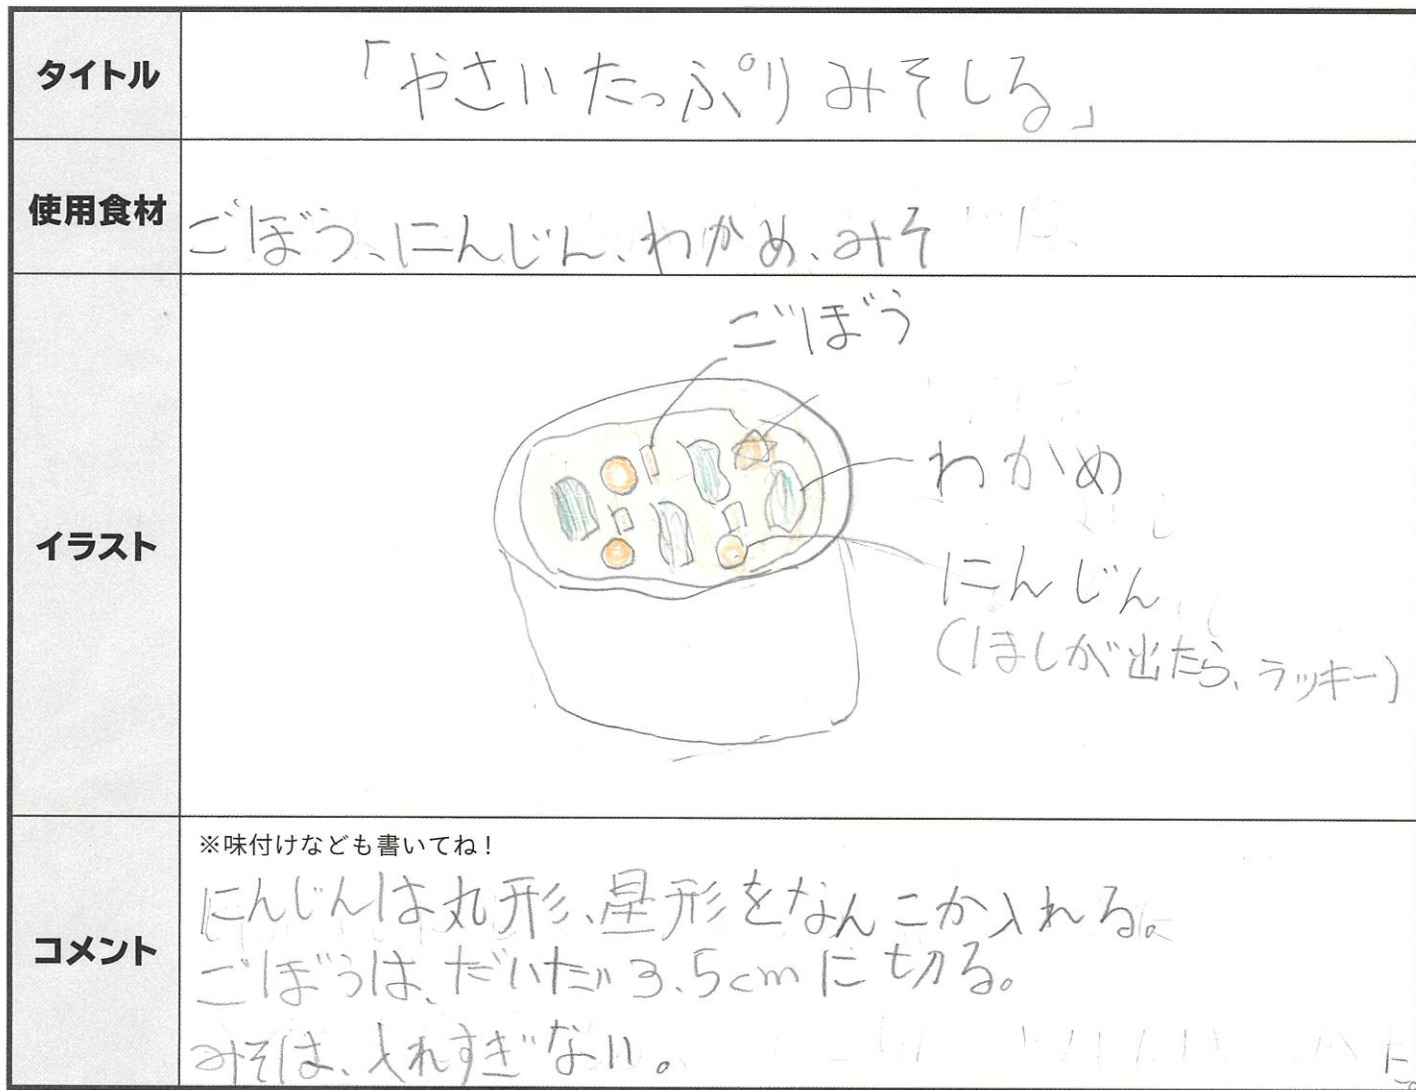 タイトル
「やさいたっぷりみそしる」
使用食材
ごぼう、にんじん、わかめ、みそ
イラスト
ごぼう
わかめ
にんじん
(ほしが出たら、ラッキー)
コメント
※味付けなども書いてね!
にんじんは丸形、星形をなんこか入れる。
ごぼうは、だいだい3.5cmに切る。
みそは、入れすぎない。